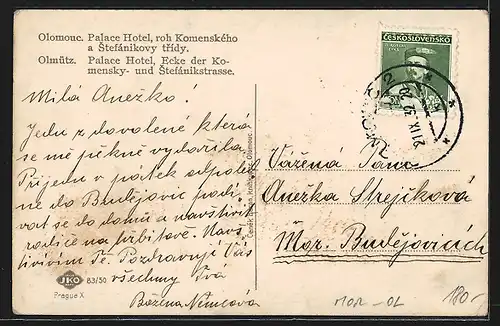 Olomouc. Palace Hotel, roh Komenského
a Štefánikovy třídy.
Olmütz. Palace Hotel, Ecke der Ko-
mensky- und Štefánikstrasse.
Milá Anežko!
Jedu z dovolené která
se mě pěkně vydařila
Přijedu v pátek odpoled
ne do Budějovic podí
vat se do domů a navštívit
rodiče na hřbitově. Navš
tívívím Tě. Pozdravuji Vás
všechny Tvá
Božena Němcová
JKO
83/30
Prague X
ČESKOSLOVENSKO
2
21.IX.
Vážená Paní
Anežka Strejčková
Mor. Budějovicích
MOR-OL
180-